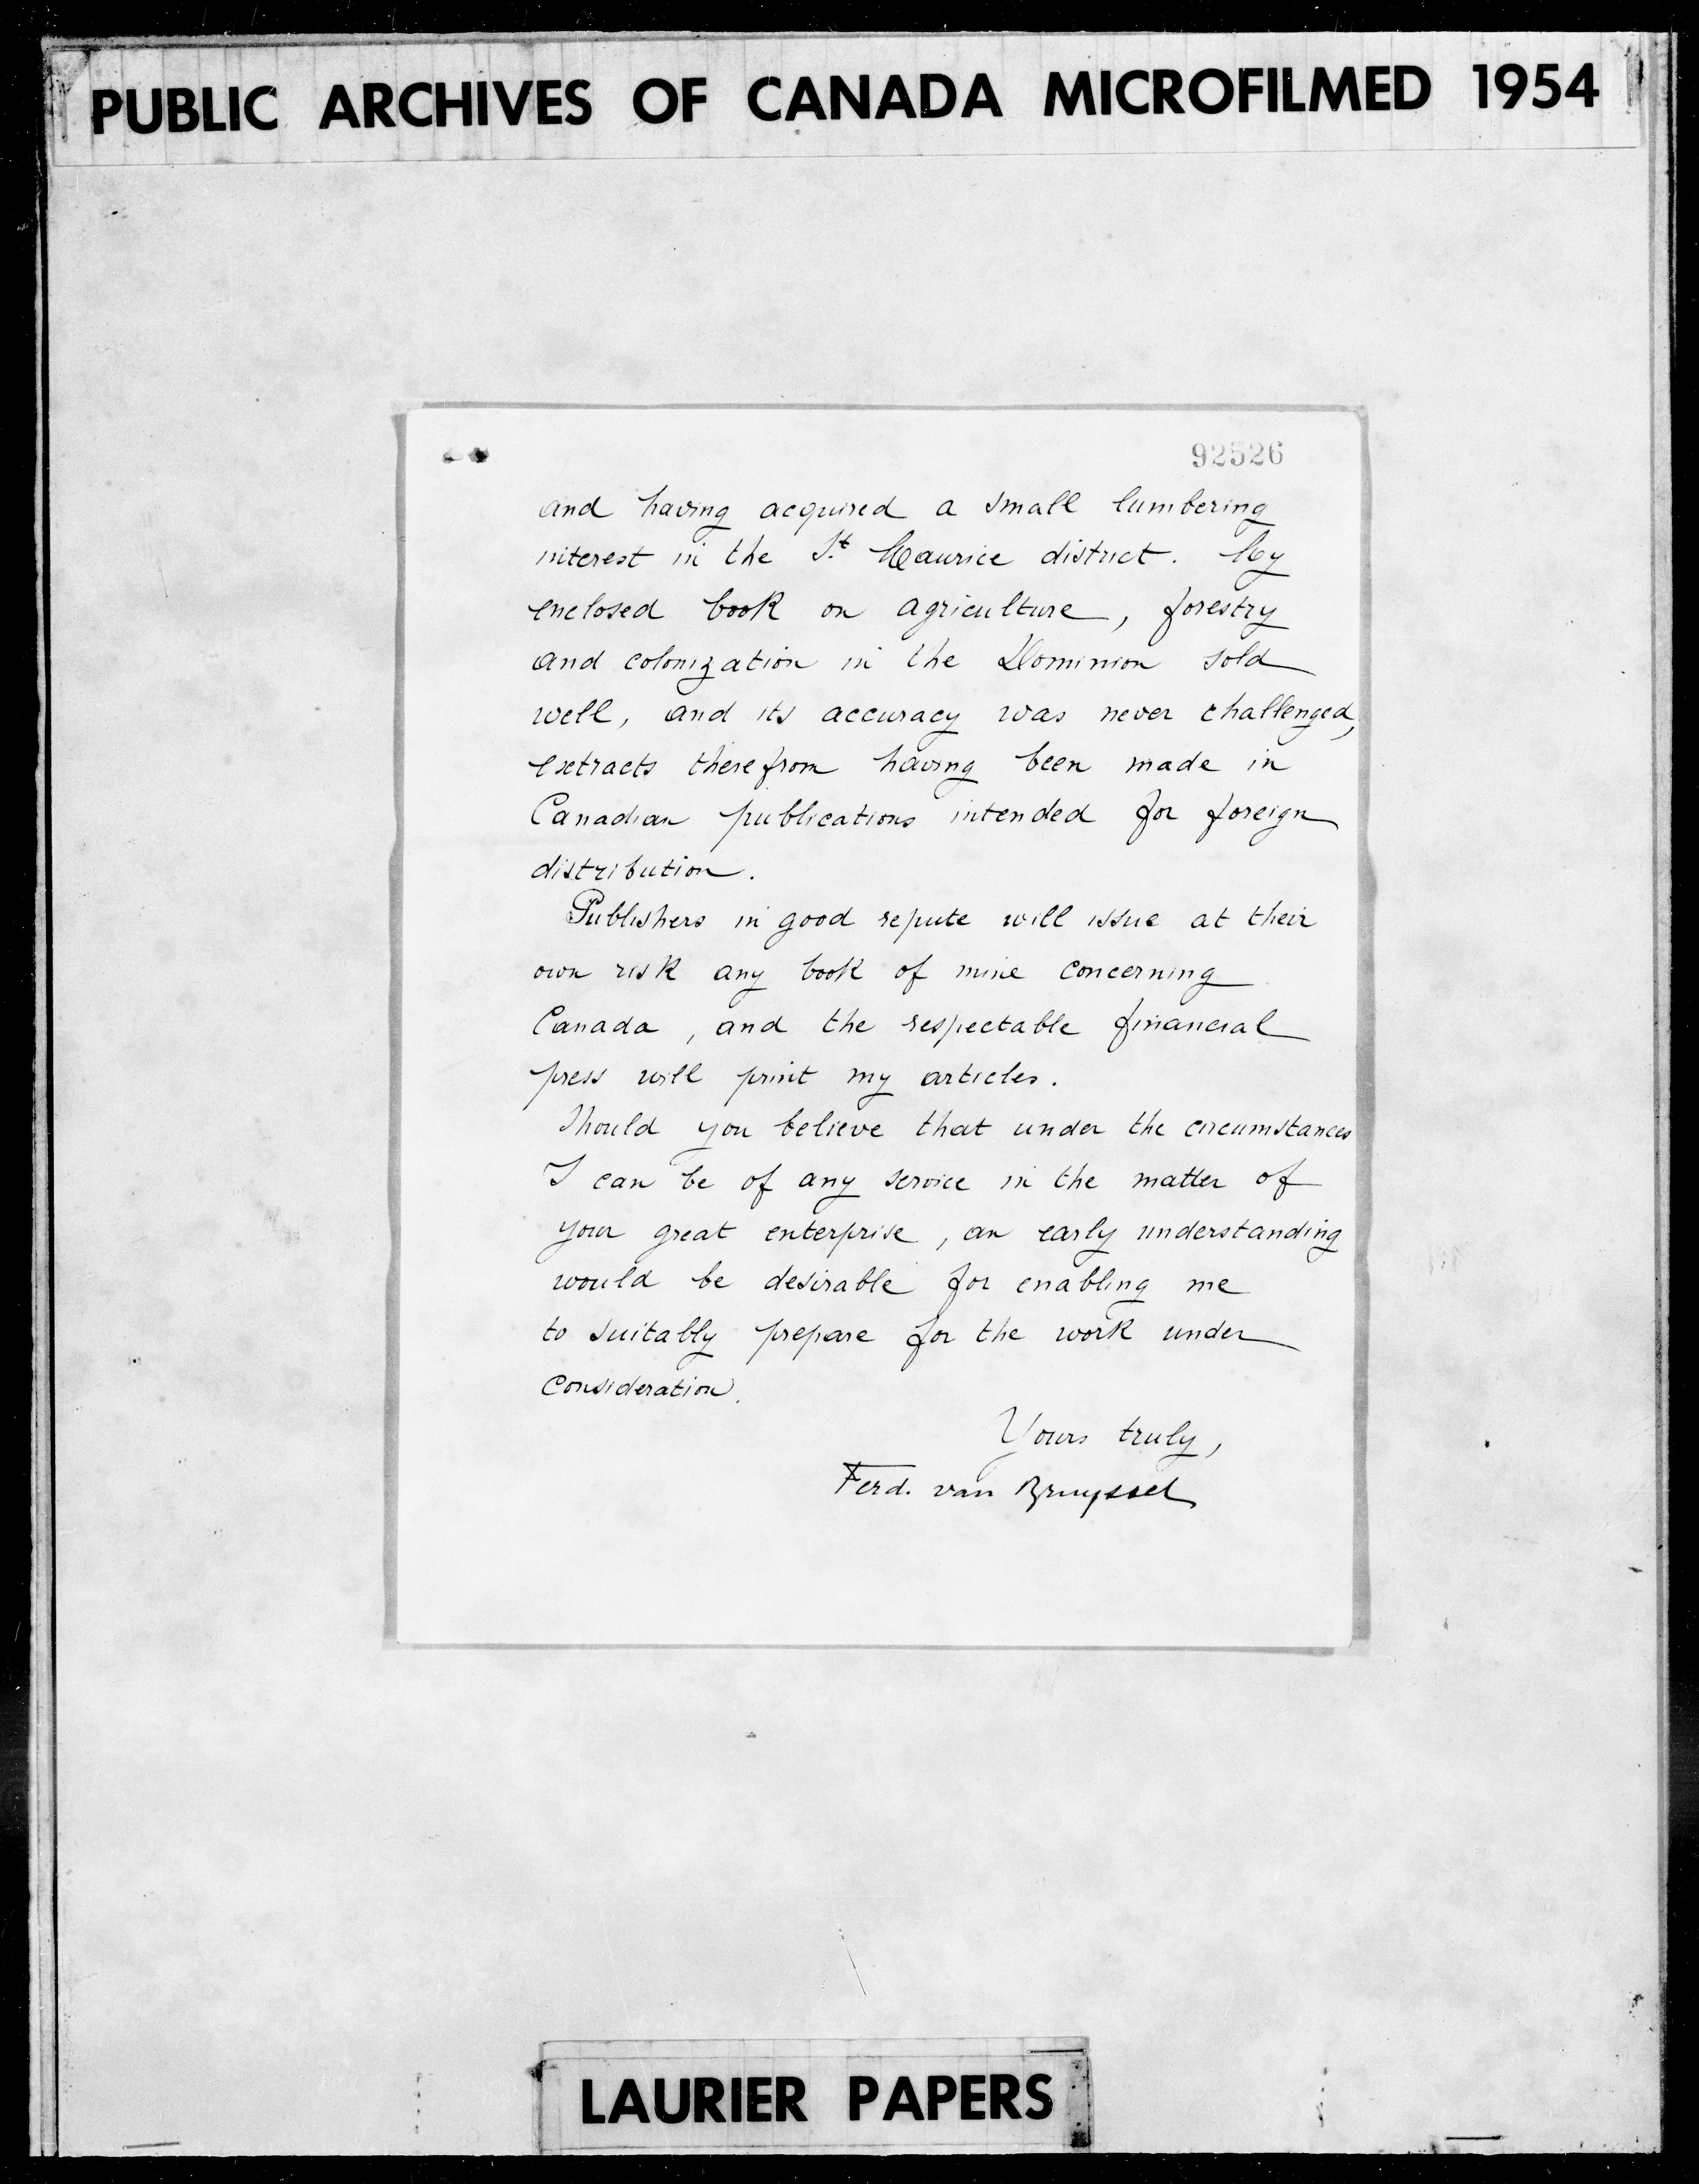 PUBLIC ARCHIVES OF CANADA MICROFILMED 1954
92526
and having acquired a small lumbering
interest in the St. Maurice district. My
enclosed book on agriculture, forestry
and colonization in the Dominion sold
well, and its accuracy was never challenged,
extracts therefrom having been made in
Canadian publications intended for foreign
distribution.
Publishers in good repute will issue at their
own risk any book of mine concerning
Canada, and the respectable financial
press will print my articles.
Should you believe that under the circumstances
I can be of any service in the matter of
your great enterprise, an early understanding
would be desirable for enabling me
to suitably prepare for the work under
consideration.
Yours truly,
Ferd. van Bruyssel
LAURIER PAPERS